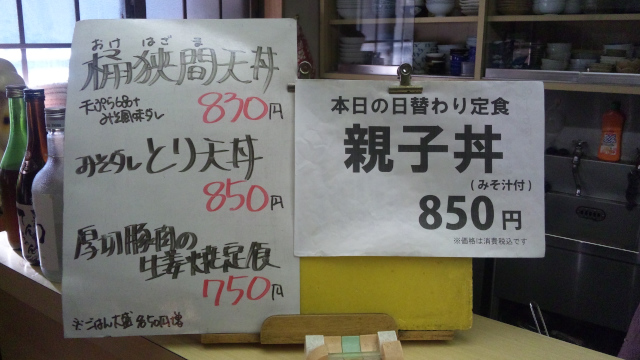 おけ はざま
桶狭間天丼
830円
みそダレ とり天丼
850円
厚切豚肉の
生姜焼定食
750円
※ごはん大盛 各50円増
本日の日替わり定食
親子丼
(みそ汁付)
850円
※価格は消費税込です